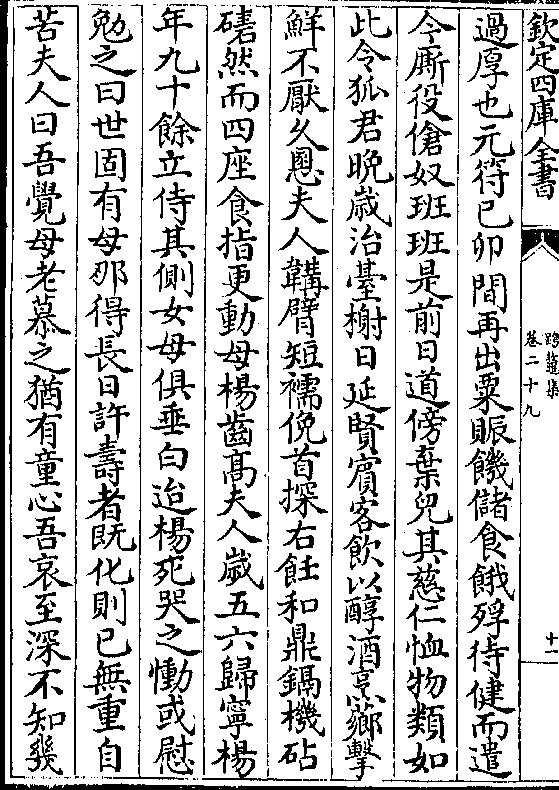 欽定四庫全書
卷二十九
十一
過厚也元符己卯間再出粟賑饑儲食餓殍待健而遣
今厮役傖奴班班是前日道傍棄兒其慈仁恤物類如
此令狐君晩歳治臺榭日延賢賔客飲以醇酒烹薌擊
鮮不厭久恩夫人韝臂短襦俛首探右飪和鼎鬲機砧
磍然而四座食指更動母楊齒髙夫人歳五六歸寧楊
年九十餘立侍其側女母俱垂白迨楊死哭之慟或慰
勉之曰世固有母那得長日許壽者既化則已無重自
苦夫人曰吾覺母老慕之猶有童心吾哀至深不知幾